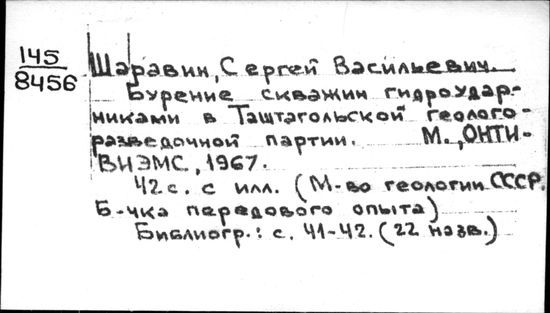 145
8456
Шаравин, Сергей Васильевич.
Бурение скважин гидроудар-
никами в Таштагольской геолого-
разведочной партии. М., ОНТИ-
ВИЭМС, 1967.
42 с. с илл. (М-во геологии СССР.
Б-чка передового опыта)
Библиогр.: с. 41-42. (22 назв.)